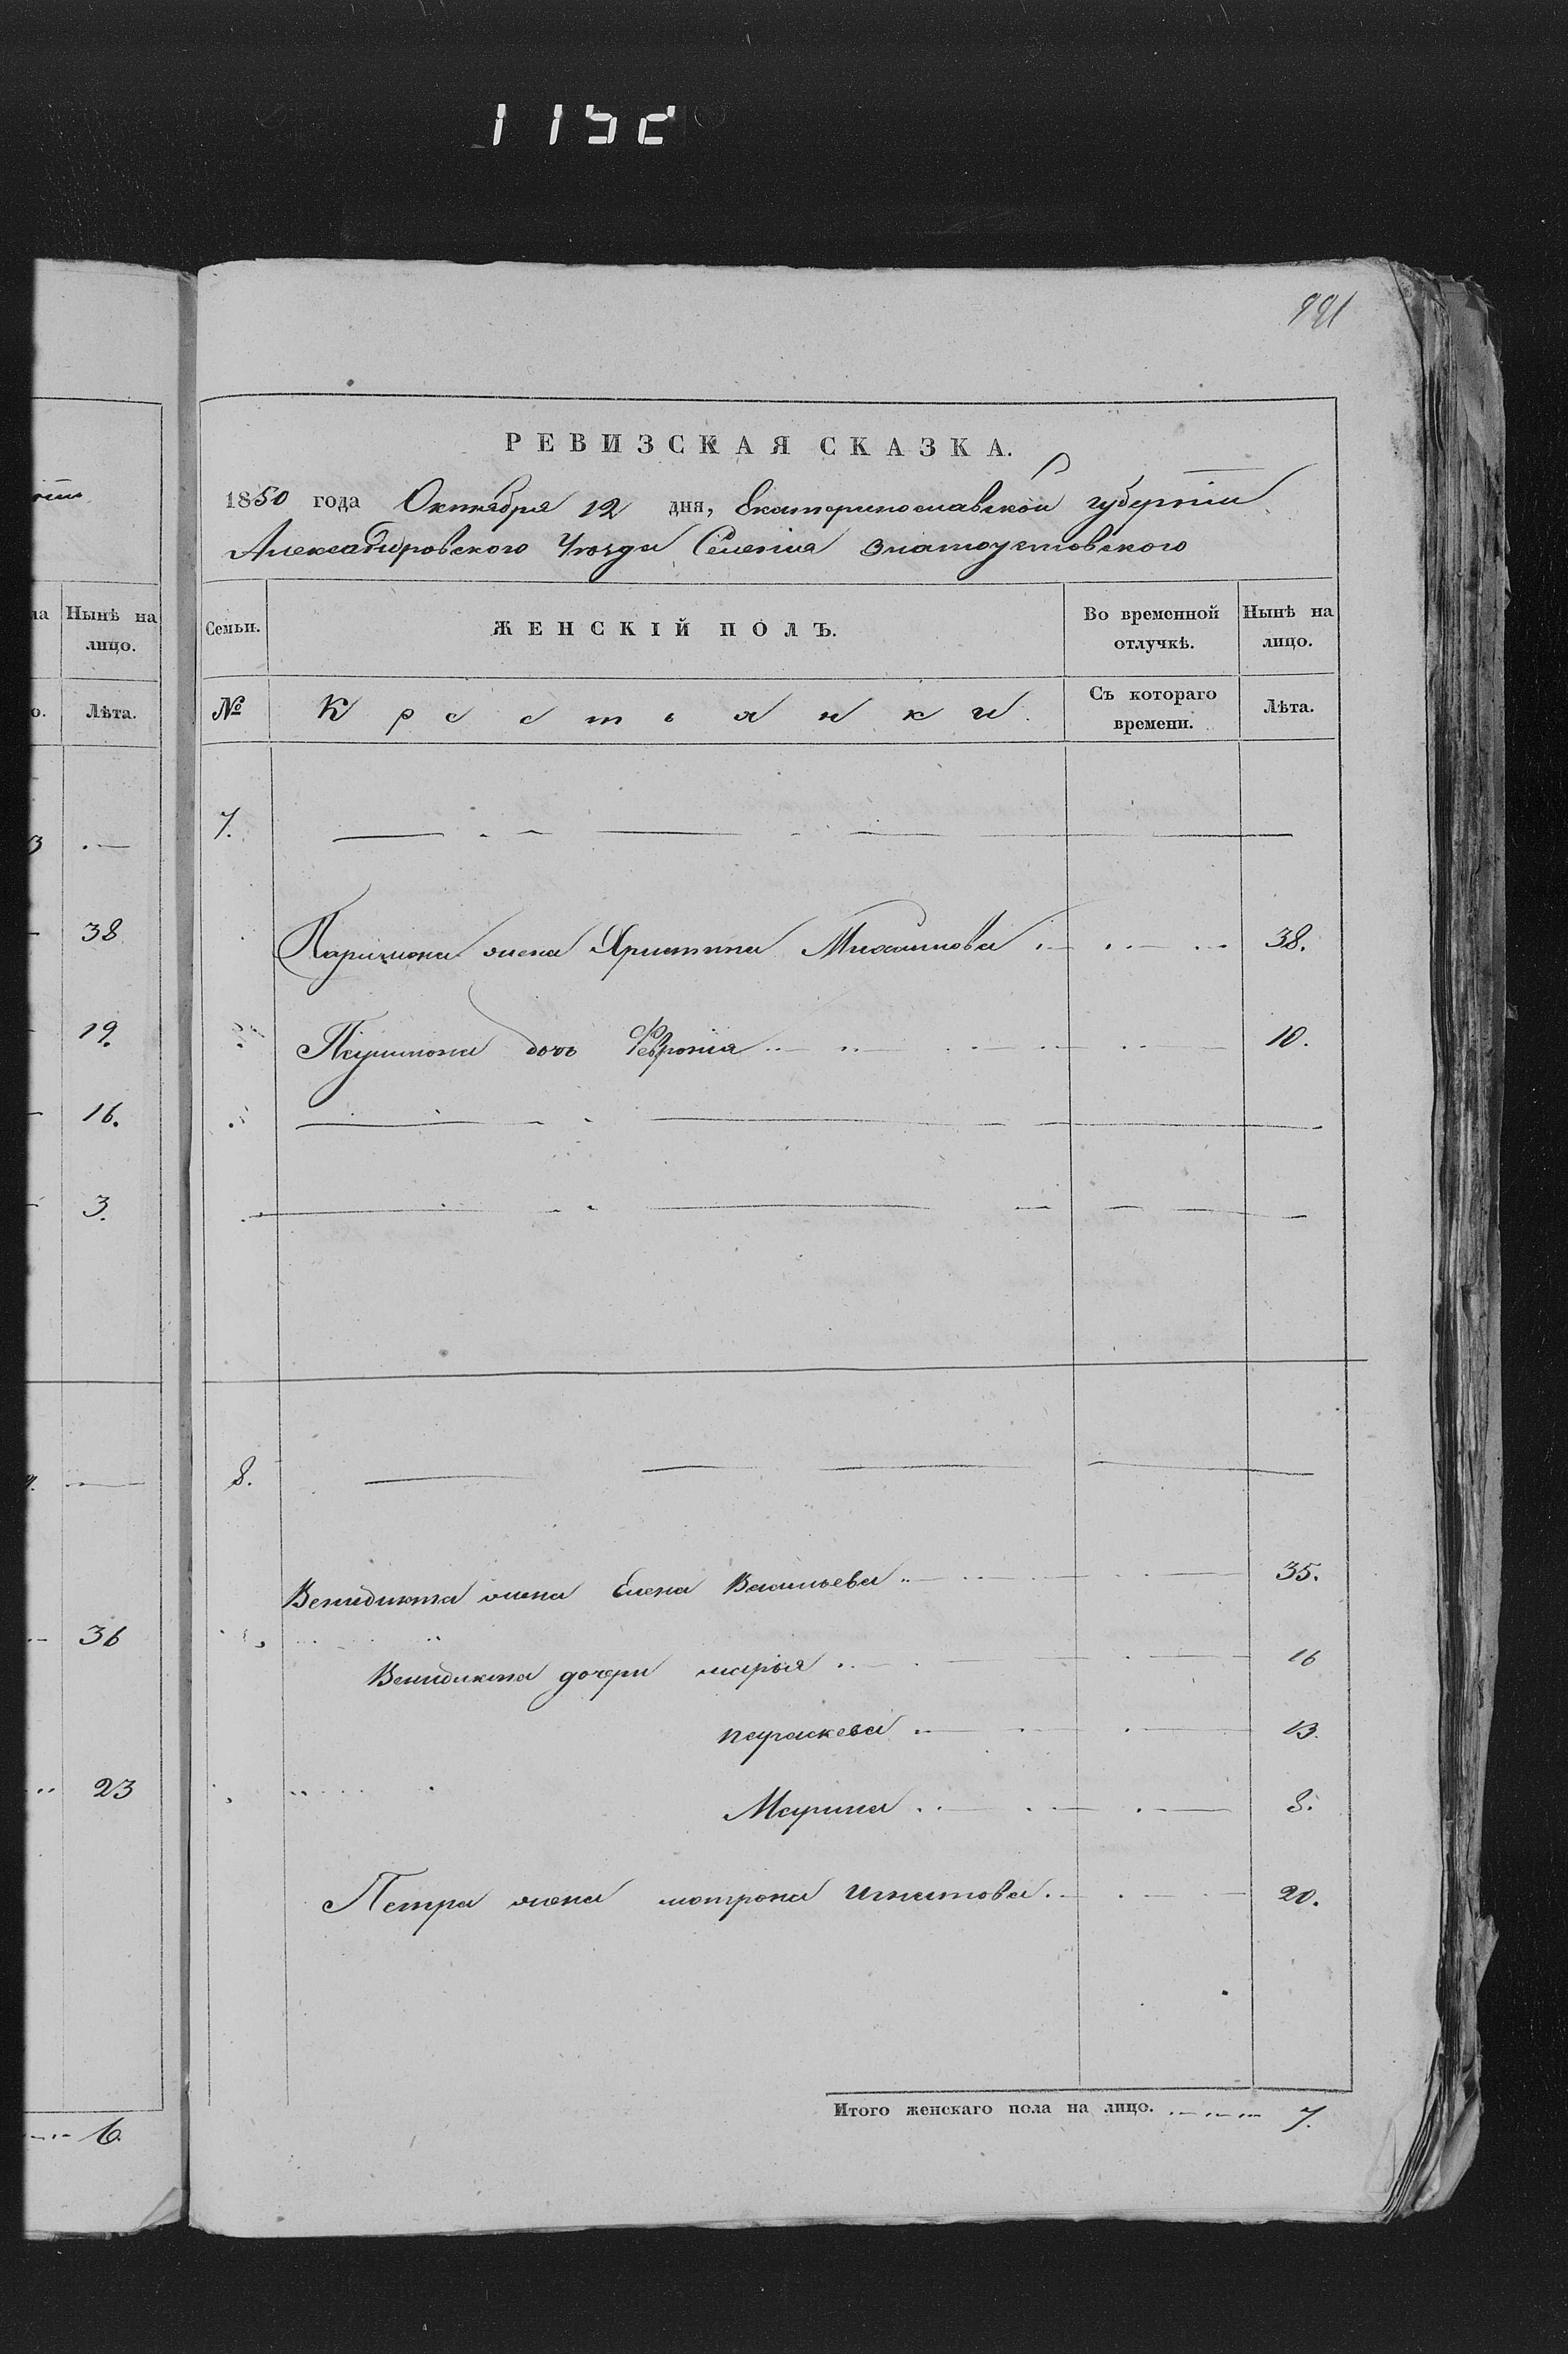 1152
991
РЕВИЗСКАЯ СКАЗКА.
1850 года Октября 12 дня, Екатеринославской губерніи
Александровского Уѣзда Селенія Златоустовского
Нынѣ на лицо.
Лѣта.
38
19.
16.
3.
36
23
6.
Семьи. ЖЕНСКІЙ ПОЛЪ. Во временной отлучкѣ. Нынѣ на лицо.
№ Крестьянки. Съ котораго времени. Лѣта.
7.
жена Христина Михайлова 38.
дочь Февронія 10.
8.
Венидикта жена Елена Васильева 35.
Венидикта дочери марія 16
параскева 13.
Марина 8.
Петра жена мотрона игнатова 20.
Итого женскаго пола на лицо. 7.